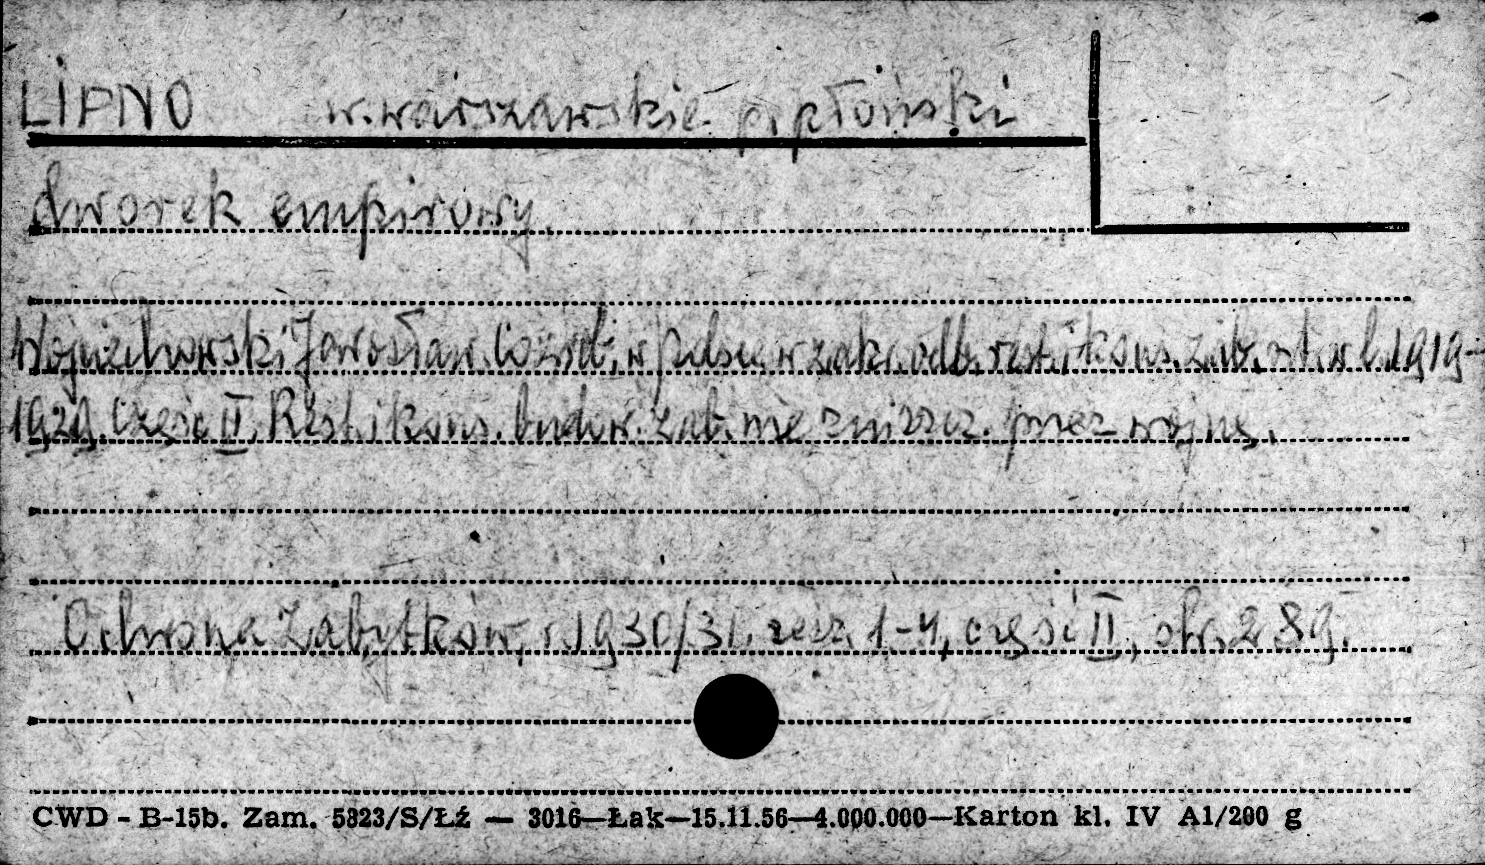 LIPNO w. warszawskie p. płoński
dworek empirowy.
Wojciechowski Jarosław. Co zrob. w Polsce w zakr. odb. rest. i kons. zab. od r. 1919-
1929. Część II. Rest. i kons. budow. zab. nie zniszcz. przez wojnę.
Ochrona Zabytków, r. 1930/31. zesz. 1-4, część II, str. 289.
CWD - B-15b. Zam. 5823/S/Łź — 3016—Łak—15.11.56—4.000.000—Karton kl. IV A1/200 g